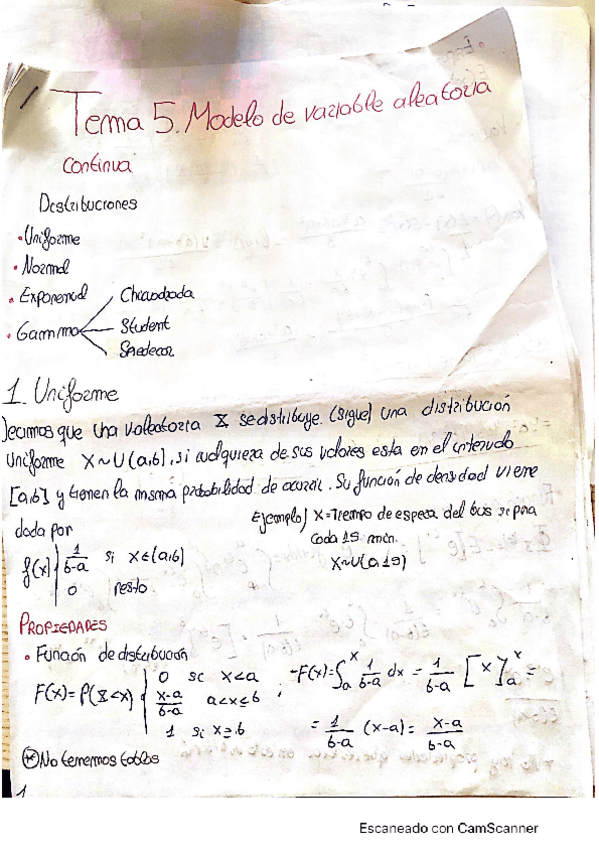 Tema 5. Modelo de variable aleatoria
continua
Distribuciones
• Uniforme
• Normal
• Exponencial
Chicuadrada
• Gamma
Student
Snedecor
1. Uniforme
Decimos que una v.aleatoria X se distribuye (sigue) una distribución
Uniforme X~U(a,b), si cualquiera de sus valores esta en el intervalo
[a,b] y tienen la misma probabilidad de ocurrir. Su función de densidad viene
dada por
Ejemplo/ X=Tiempo de espera del bus si pasa
cada 19 min.
X~U(0,19)
f(x) { 1/b-a si x∈(a,b)
0 resto
PROPIEDADES
• Función de distribución
F(x)=P(X<x) { 0 si x<a
x-a/b-a a<x≤b ;
1 si x≥b
-F(x)=∫ₐˣ 1/b-a dx = 1/b-a [x]ₐˣ =
= 1/b-a (x-a) = x-a/b-a
* No tenemos tablas
1
Escaneado con CamScanner